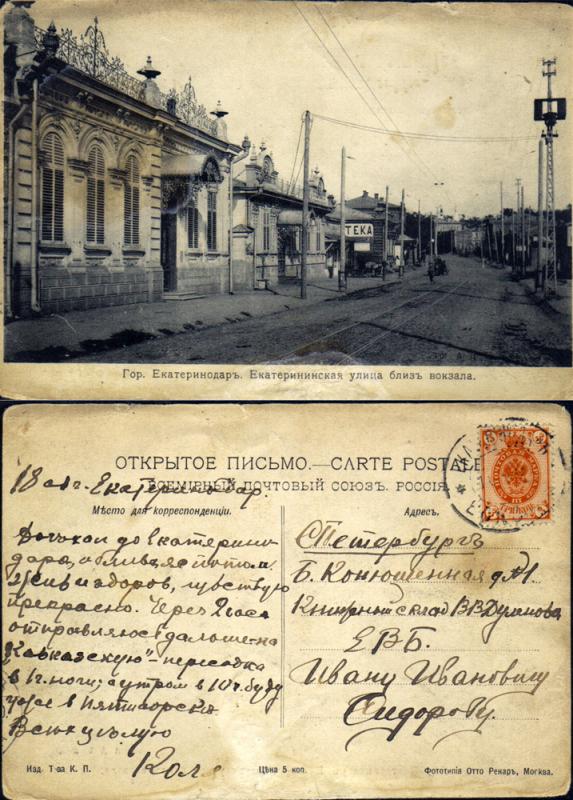 ТЕКА
Гор. Екатеринодаръ. Екатерининская улица близъ вокзала.
ОТКРЫТОЕ ПИСЬМО.—CARTE POSTALE
ВСЕМІРНЫЙ ПОЧТОВЫЙ СОЮЗЪ. РОССІЯ
18 Екатеринодар.
Мѣсто для корреспонденціи.
Адресъ.
Доѣхал до Екатерино-
дара, обливаясь потом
Жив и здоров, чувствую
прекрасно. Через 2 часа
отправляюсь дальше на
"Кавказскую" - пересадка
в 1 г. ночи; а утром в 10 г. буду
уже в Пятигорске
Всѣх цѣлую
Коля
СПетербургъ
Б. Конюшенная д. №1
Книжный склад В.В. Думнова
ЕВБ.
Ивану Ивановичу
Сидорову.
Изд. Т-ва К. П.
Цѣна 5 коп.
Фототипія Отто Ренаръ, Москва.